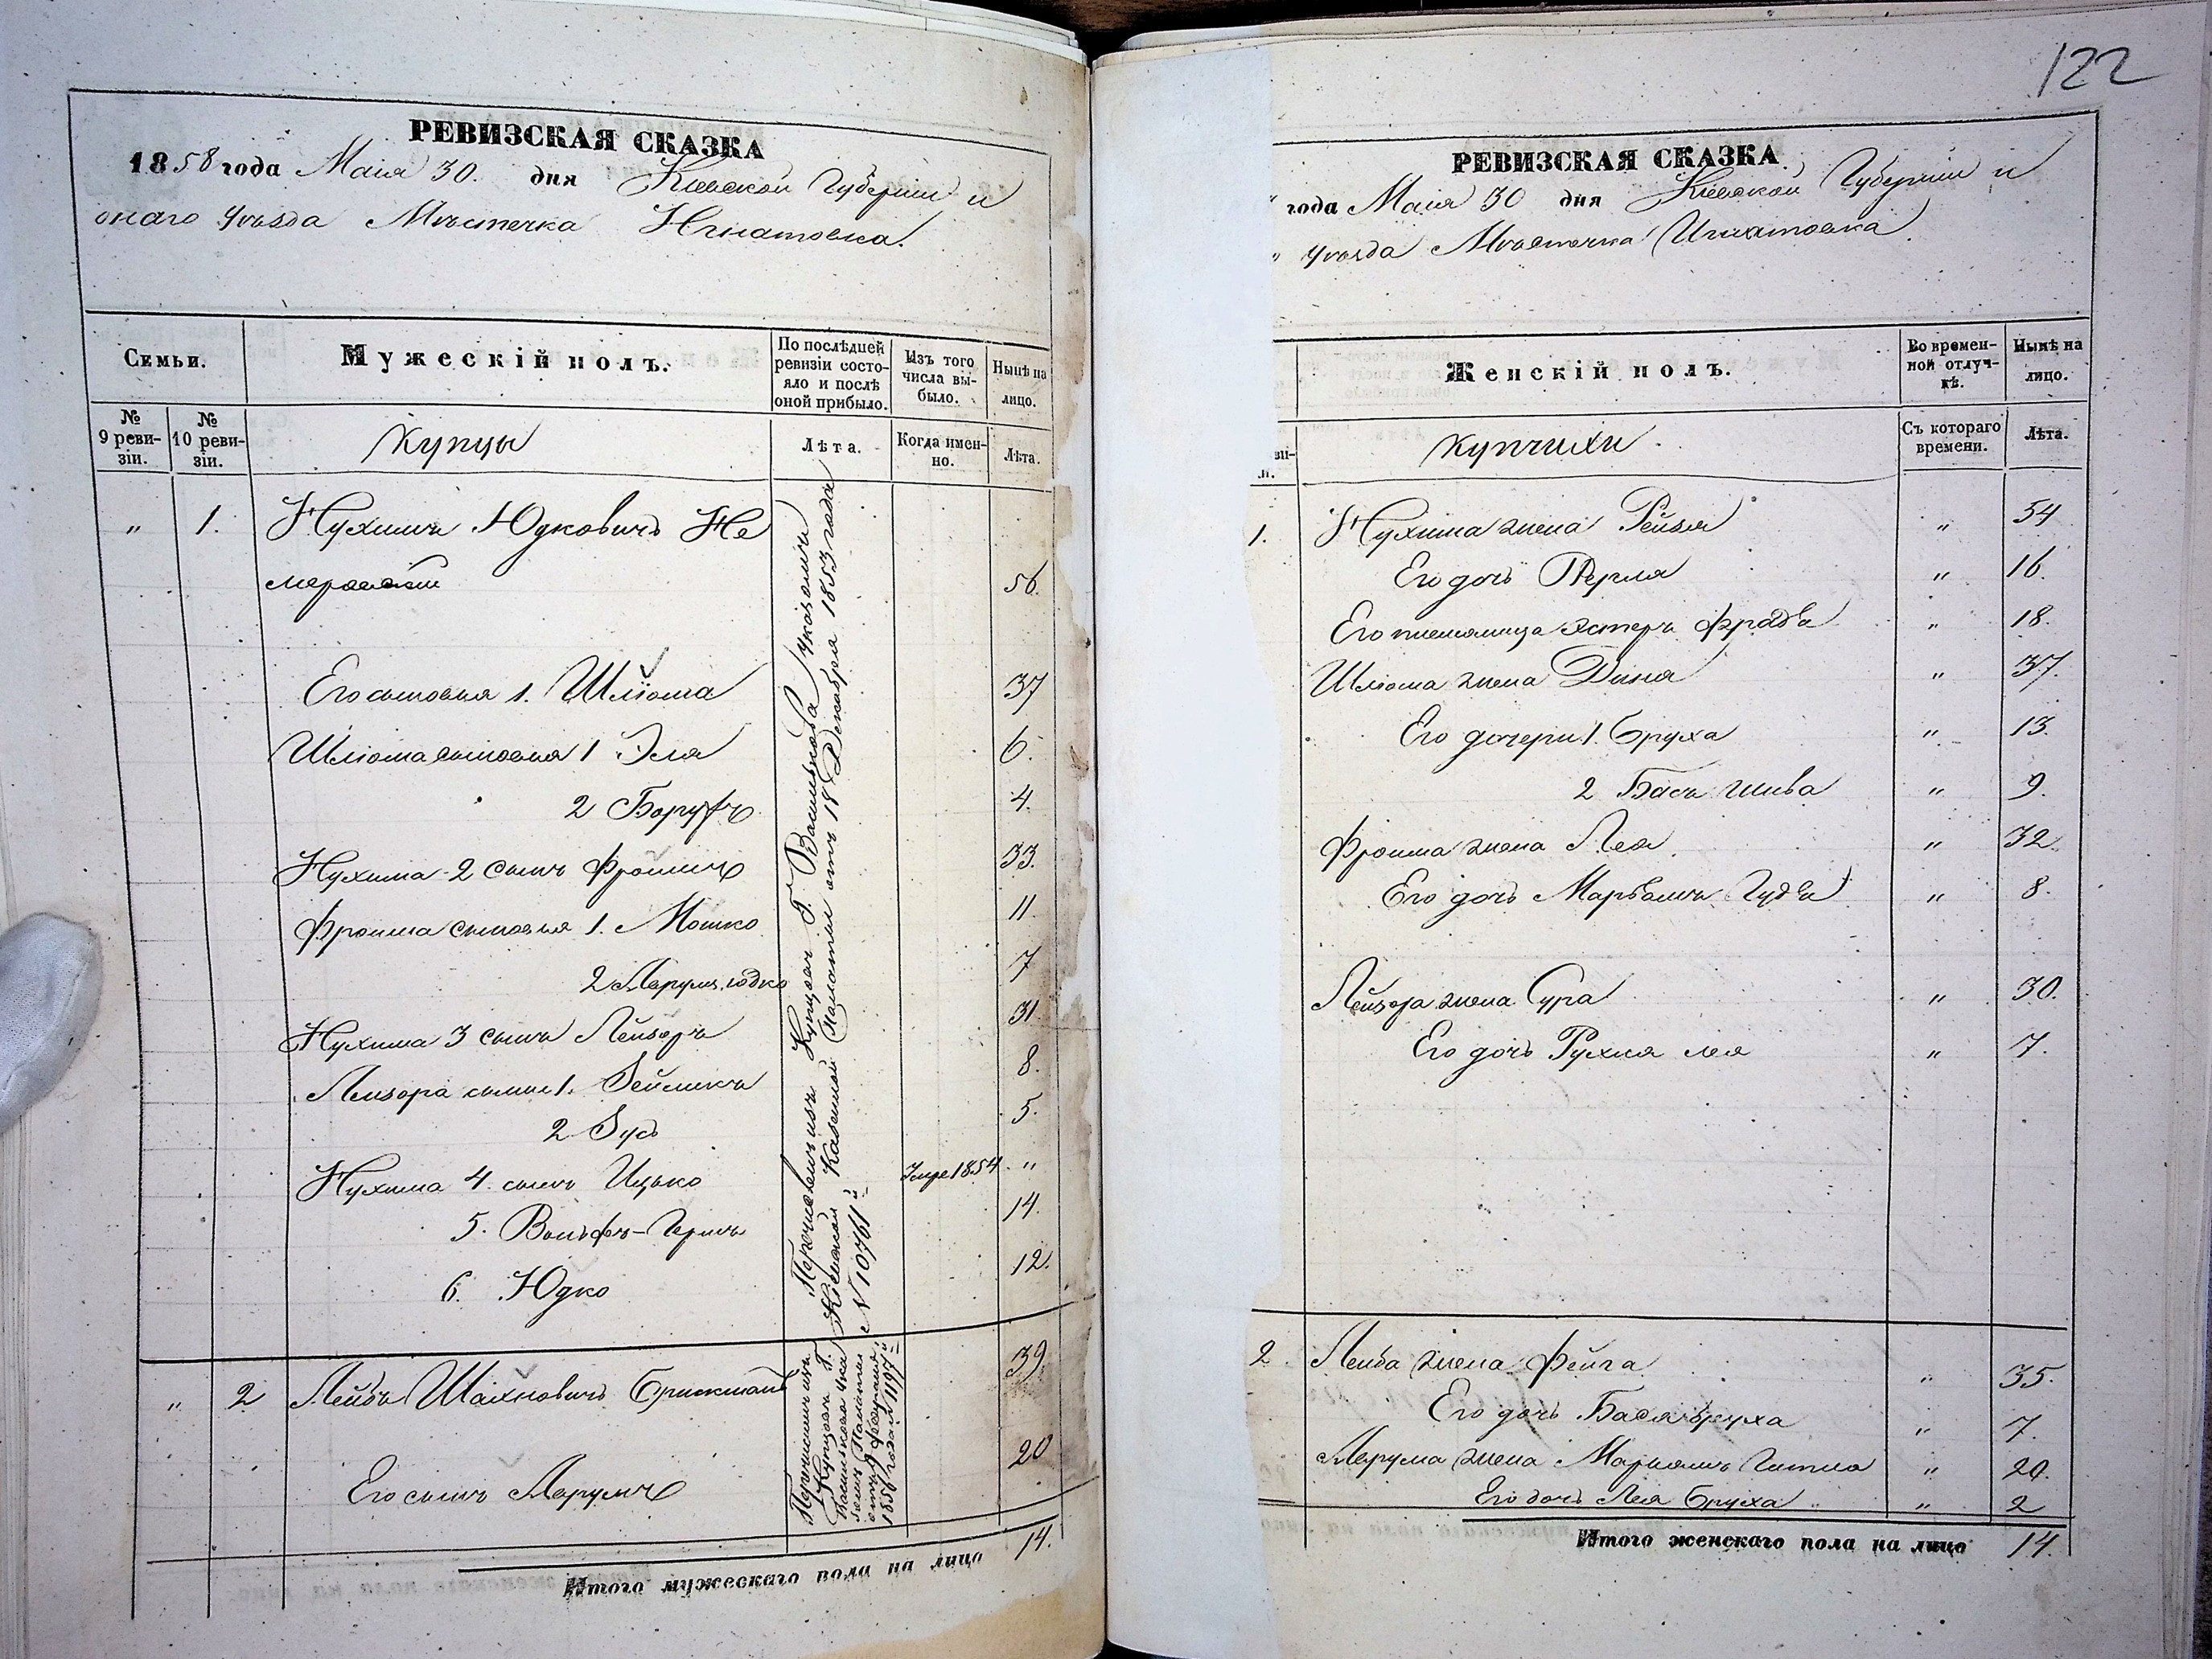 122
РЕВИЗСКАЯ СКАЗКА
1858 года Маія 30. дня Кіевской Губерніи и
онаго Уѣзда Мѣстечка Игнатовка.
Семьи.
Мужескій полъ.
По послѣдней ревизіи состояло и послѣ оной прибыло.
Изъ того числа выбыло.
Нынѣ на лицо.
№ 9 ревизіи.
№ 10 ревизіи.
Купцы
Лѣта.
Когда именно.
Лѣта.
" 1. Нухимъ Юдковичъ Не
мировскій 56.
Его сыновья 1. Шліома 37
Шліома сыновья 1 Эля 6.
2 Борухъ 4.
Нухима 2 сынъ Фроимъ 33.
Фроима сыновья 1. Мошко 11
2 Лерумъ юдко 7
Нухима 3 сынъ Лейзоръ 31
Лейзора сыны 1. Зейликъ 8.
2 Зусь 5.
Нухима 4. сынъ Ицько Умре 1854 "
5. Вольфъ-Гершъ 14.
6. Юдко 12.
Перечисленъ изъ Купцовъ Г. Василькова Указомъ
Кіевской Казенной Палаты отъ 18 Декабря 1853 года
№ 10761й
" 2 Лейба Шахновичъ Брискманъ 39.
Его сынъ Лерумъ 20
Перечислены изъ
Купцовъ Г.
Василькова Ука
зомъ Палаты
отъ 9 февраля
1857 года № 1197й
Итого мужескаго пола на лицо 14.
РЕВИЗСКАЯ СКАЗКА
" года Маія 30 дня Кіевской Губерніи и
" Уѣзда Мѣстечка Игнатовка.
Женскій полъ.
Во временной отлучкѣ.
Нынѣ на лицо.
Купчихи
Съ котораго времени.
Лѣта.
1. Нухима жена Рейзя " 54
Его дочь Перля " 16.
Его племяница Эстеръ Фрадва " 18.
Шліома жена Диня " 37.
Его дочери 1. Бруха " 13.
2 Бась шива " 9.
Фроима жена Лея " 32.
Его дочь Марьямъ Гудя " 8.
Лейзора жена Сура " 30.
Его дочь Рухля лея " 7.
2. Лейба жена Фейга " 35.
Его дочь Бася бруха " 7.
Лерума жена Марьямъ Гитля " 20.
Его дочь Лея Бруха " 2
Итого женскаго пола на лицо 14.